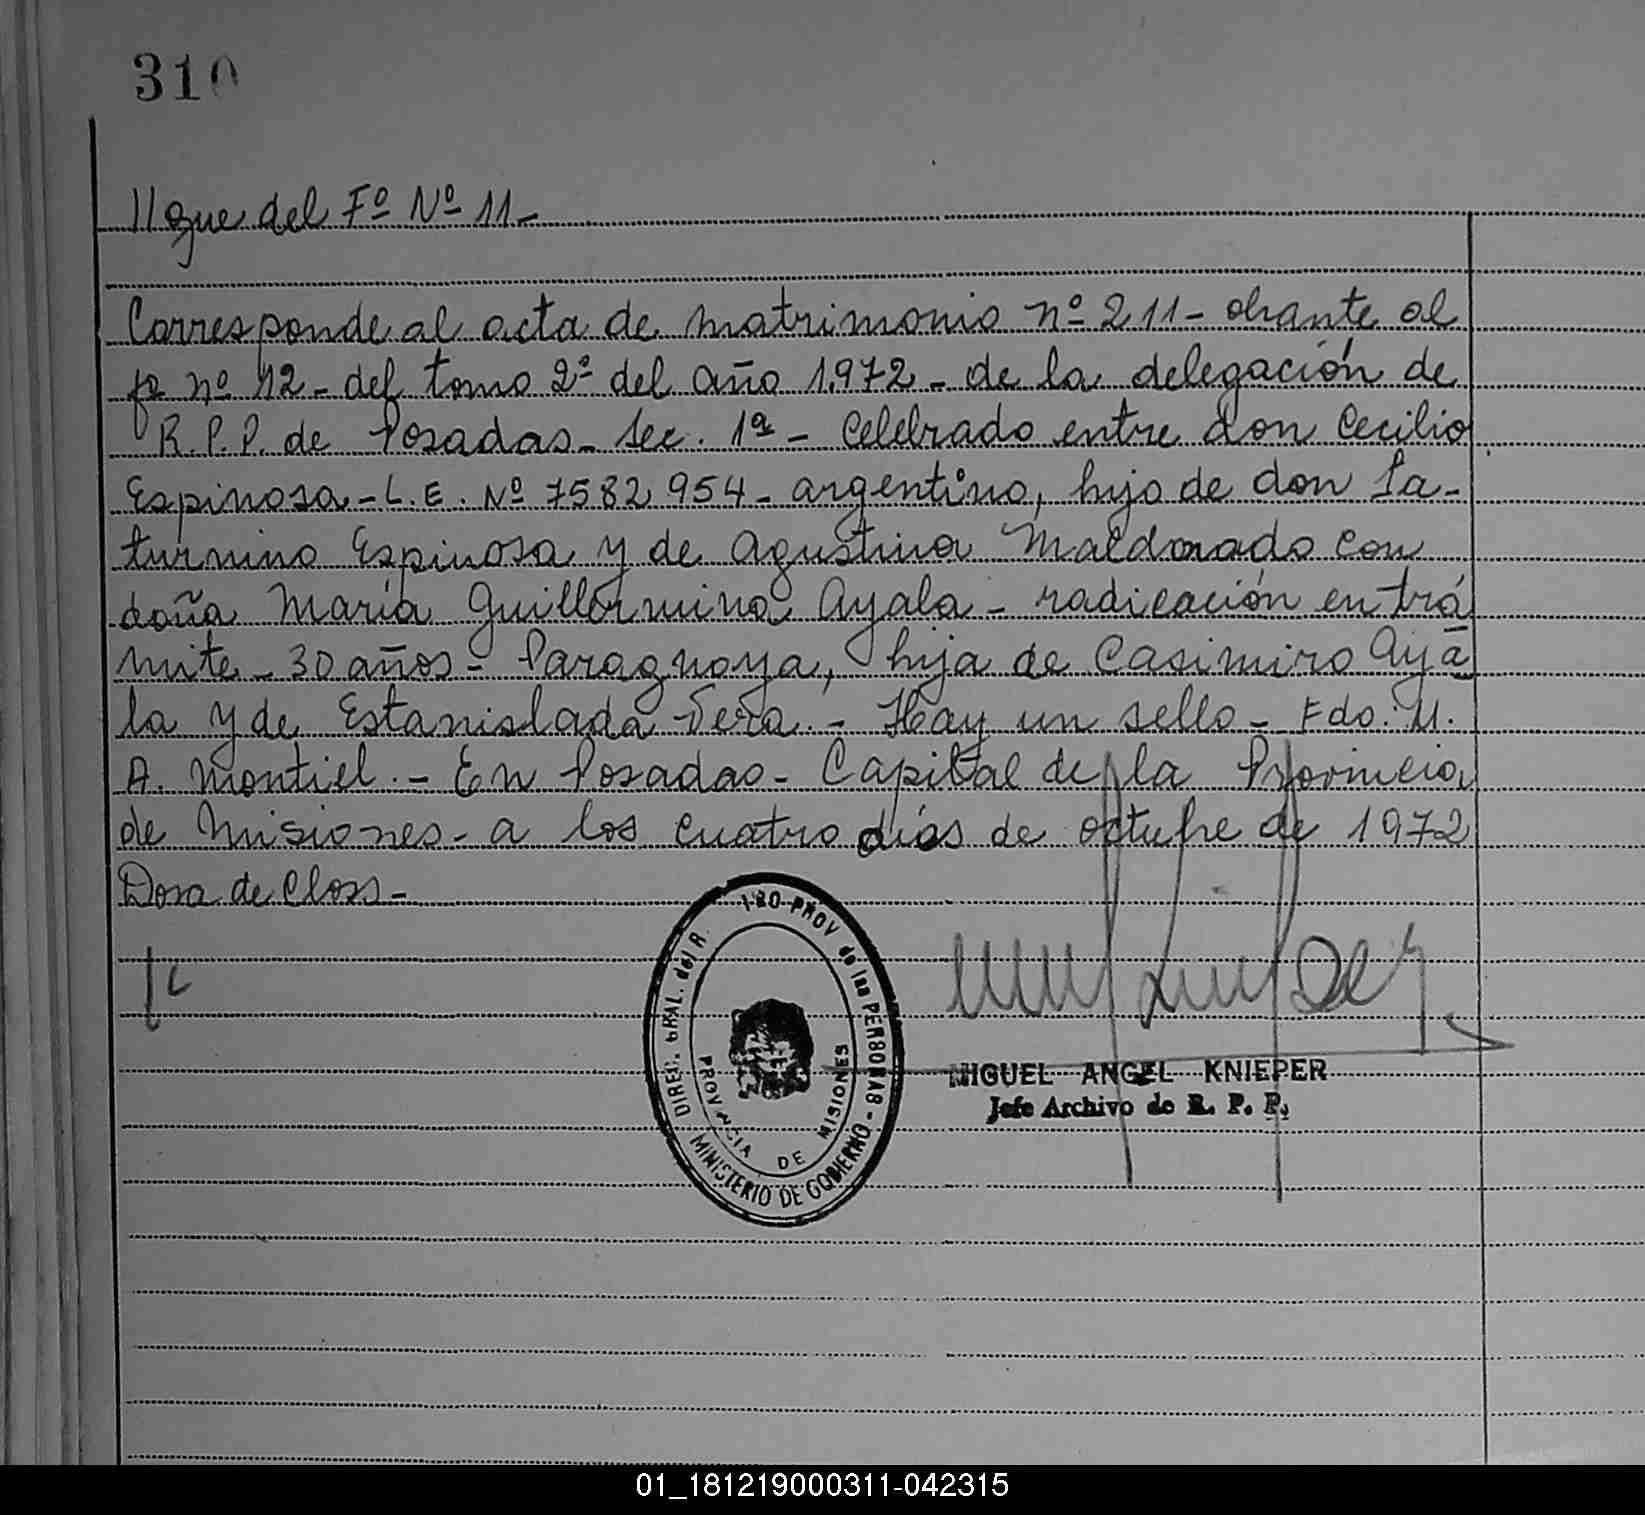 310
//gue del Fº Nº 11-
Corresponde al acta de matrimonio nº 211 - obrante al
fº nº 12 - del tomo 2º del año 1.972 - de la delegación de
R.P.P. de Posadas - Sec. 1ª - Celebrado entre don Cecilio
Espinosa - L.E. Nº 7582 954 - argentino, hijo de don Sa-
turnino Espinosa y de Agustina Maldonado con
doña María Guillermina Ayala - radicación en trá
mite - 30 años - Paraguaya, hija de Casimiro Aya
la y de Estanislada Vera. - Hay un sello - Fdo: M.
A. Montiel. - En Posadas - Capital de la Provincia
de Misiones - a los cuatro días de octubre de 1972
Dora de Closs -
DIREC. GRAL. del R. PROV de las PERSONAS - MINISTERIO DE GOBIERNO
PROVINCIA DE MISIONES
MIGUEL ANGEL KNIEPER
Jefe Archivo de R. P. P.
01_181219000311-042315